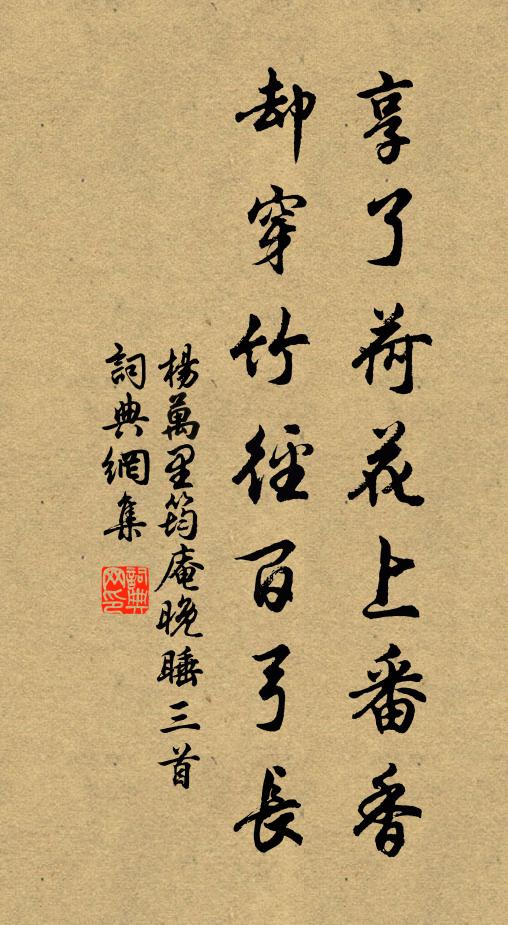 享了荷花上番香
却穿竹徑百弓長
楊萬里筠庵晚睡三首
詞典網集
詞典网印